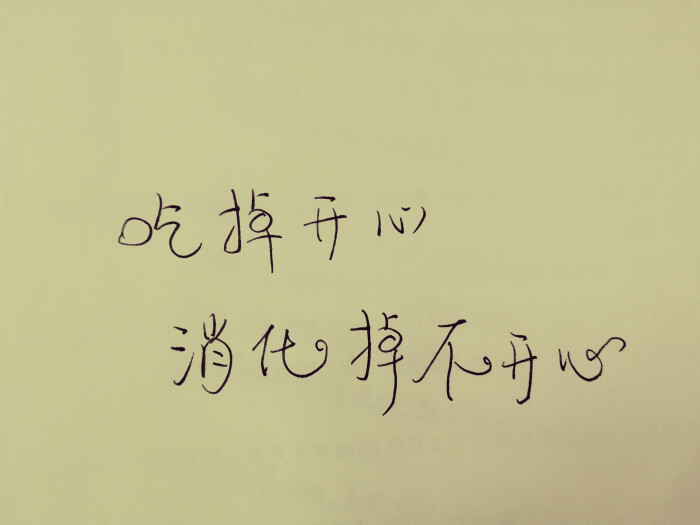 吃掉开心
消化掉不开心